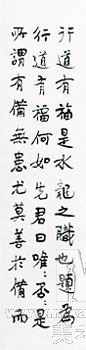 行道有福是水龍之職也題為
行道有福何如先君曰唯唯否否是
所謂有備無患尤莫善於備而